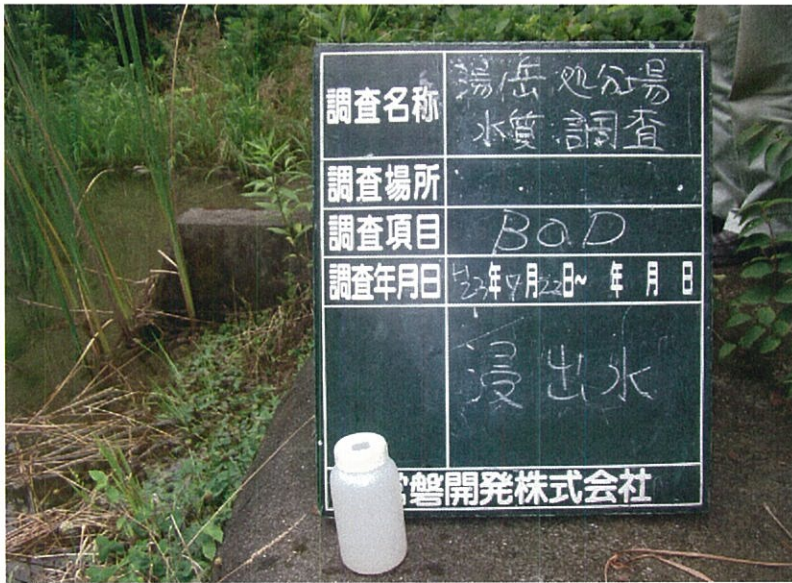 調査名称 湯岳処分場
水質調査
調査場所
調査項目 BOD
調査年月日 H23年7月22日~ 年 月 日
浸出水
常磐開発株式会社